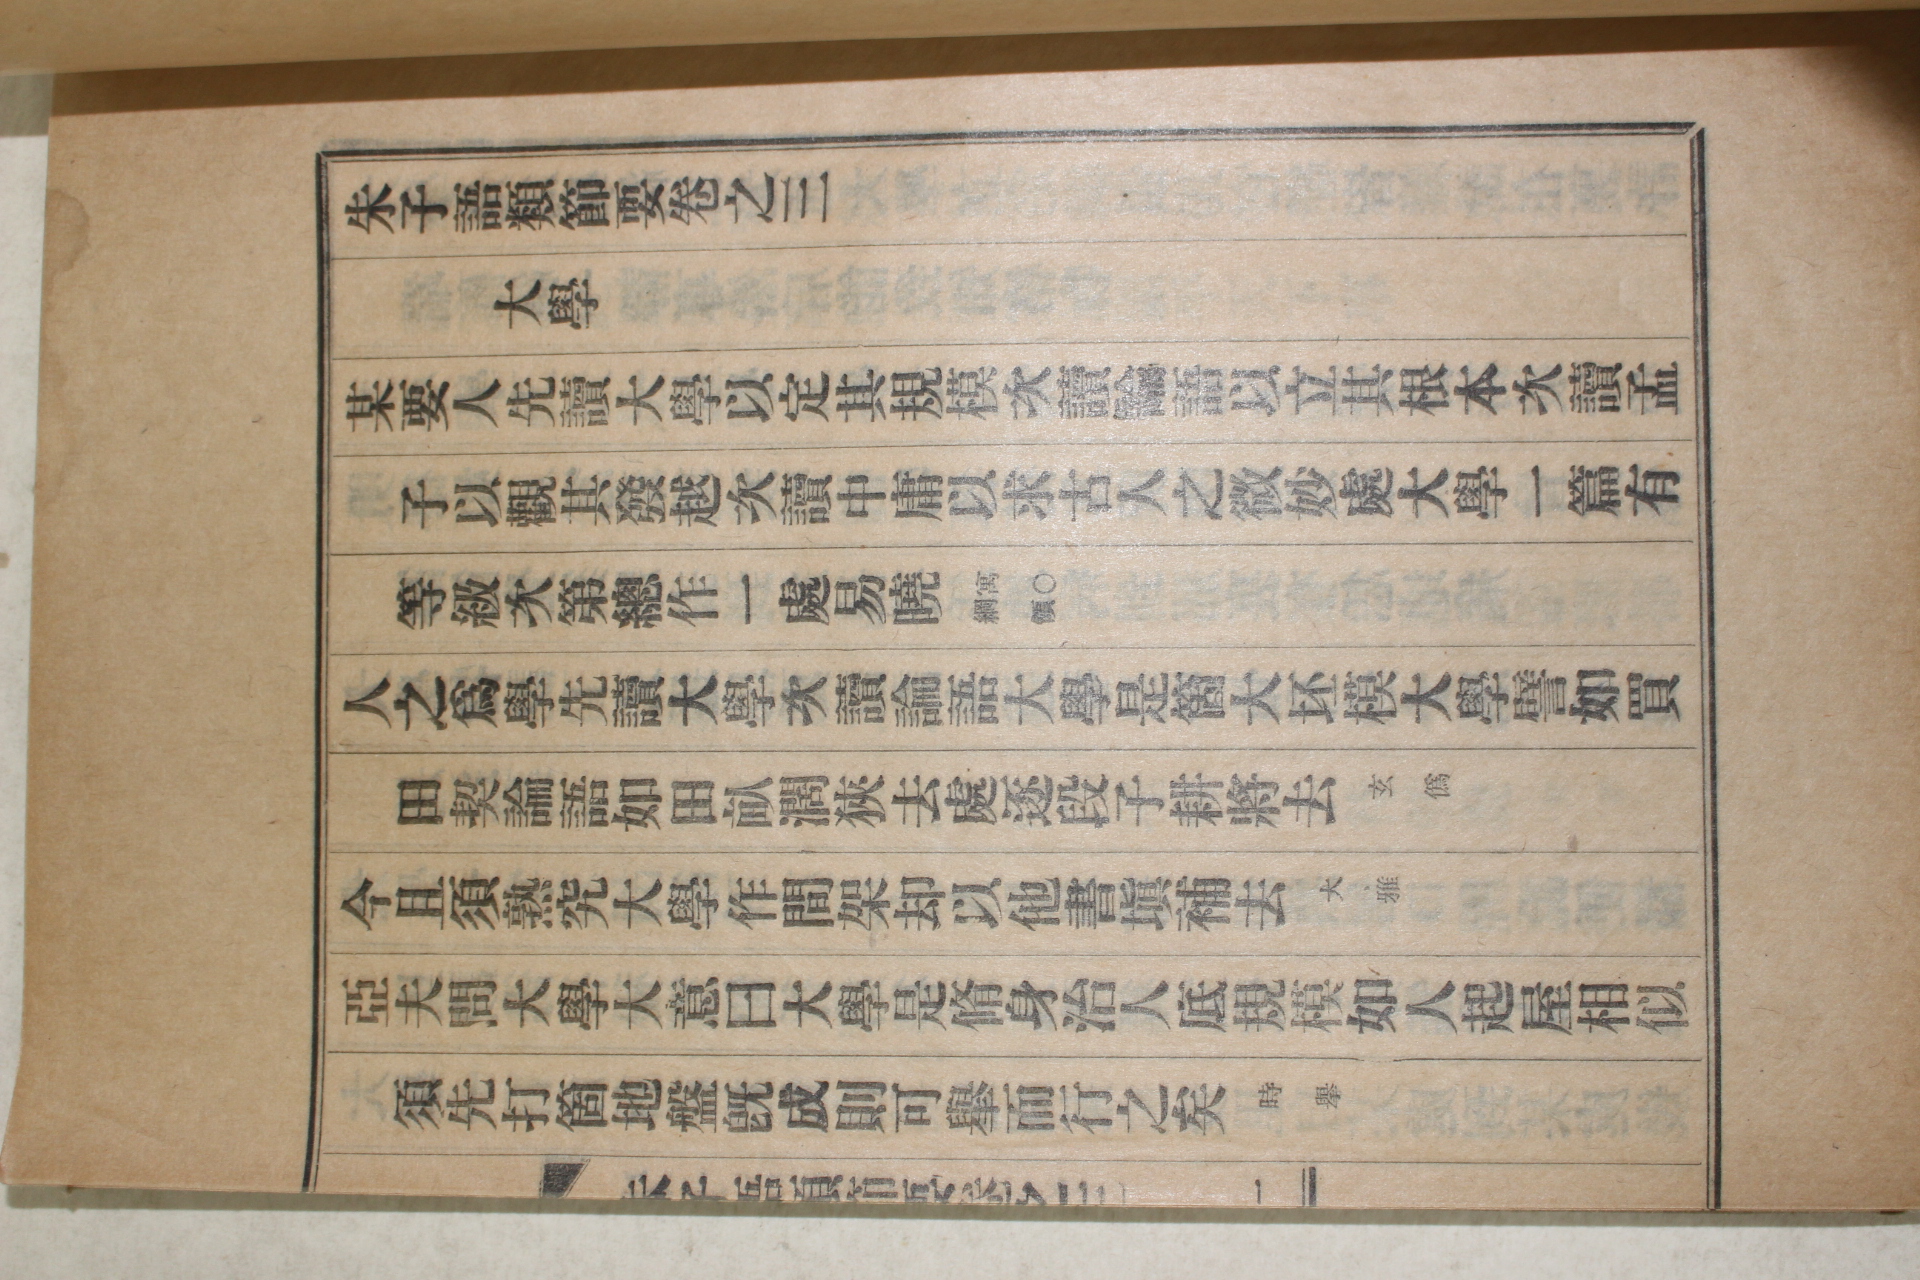 朱子語類節要卷之三
大學
某要人先讀大學以定其規模次讀論語以立其根本次讀孟
子以觀其發越次讀中庸以求古人之微妙處大學一篇有
等級次第總作一處易曉寓〇綱領
人之爲學先讀大學次讀論語大學是箇大坯模大學譬如買
田契論語如田畝濶狹去處逐段子耕將去玄僞
今且須熟究大學作間架却以他書塡補去大雅
亞夫問大學大意曰大學是脩身治人底規模如人起屋相似
須先打箇地盤旣成則可擧而行之矣時擧
朱子語類節要卷之三
一